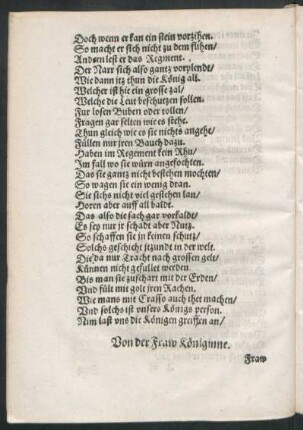 Doch wenn er kan ein stein vorzihen.
So macht er sich nicht zu dem flihen/
Andern lest er das Regment.
Der Narr sich also gantz vorplendt/
Wie dann itz thun die König all.
Welcher ist hie ein grosse zal/
Welche die Leut beschutzen sollen.
Fur losen Buben oder tollen/
Fragen gar selten wie es stehe.
Thun gleich wie es sie nichts angehe/
Füllen nur jren Bauch dazu.
Haben im Regement kein Rhu/
Im fall wo sie würn angefochten.
Das sie gantz nicht bestehen mochten/
So wagen sie ein wenig dran.
Sie sichs nicht viel gestehen lan/
Horen aber auff all baldt.
Das also die sach gar vorkaldt/
Es sey nur je schadt aber Nutz.
So schaffen sie in keinen schutz/
Solchs geschicht jtzundt in der welt.
Die da nur Tracht nach grossen gelt/
Künnen nicht gefullet werden.
Bis man sie zuscharr mit der Erden/
Vnd füllt mit golt jren Rachen.
Wie mans mit Crasso auch thet machen/
Vnd solchs ist vnsers Königs person.
Nun last vns die Königen greiffen an/
Von der Fraw Königinne.
Fraw